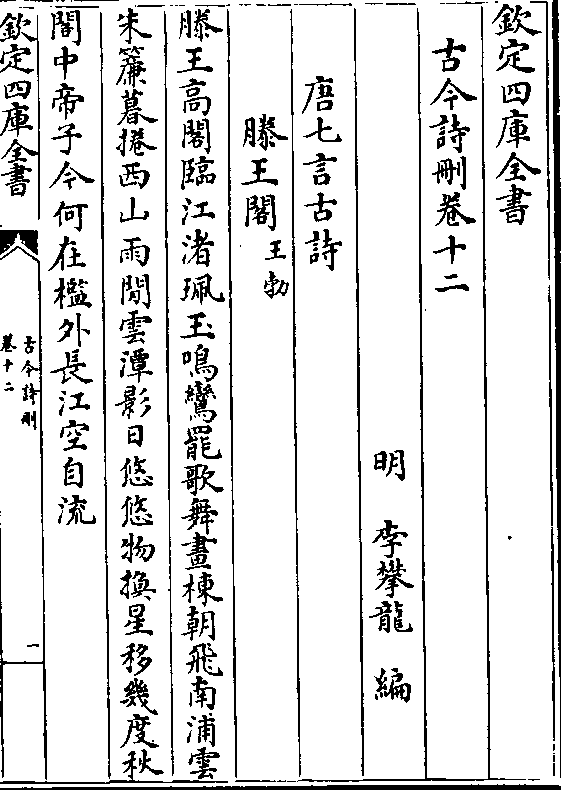 欽定四庫全書
古今詩刪卷十二
明 李攀龍 編
唐七言古詩
滕王閣 王勃
滕王高閣臨江渚珮玉鳴鸞罷歌舞畫棟朝飛南浦雲
朱簾暮捲西山雨閒雲潭影日悠悠物換星移幾度秋
閣中帝子今何在檻外長江空自流
欽定四庫全書
古今詩刪
卷十二
一